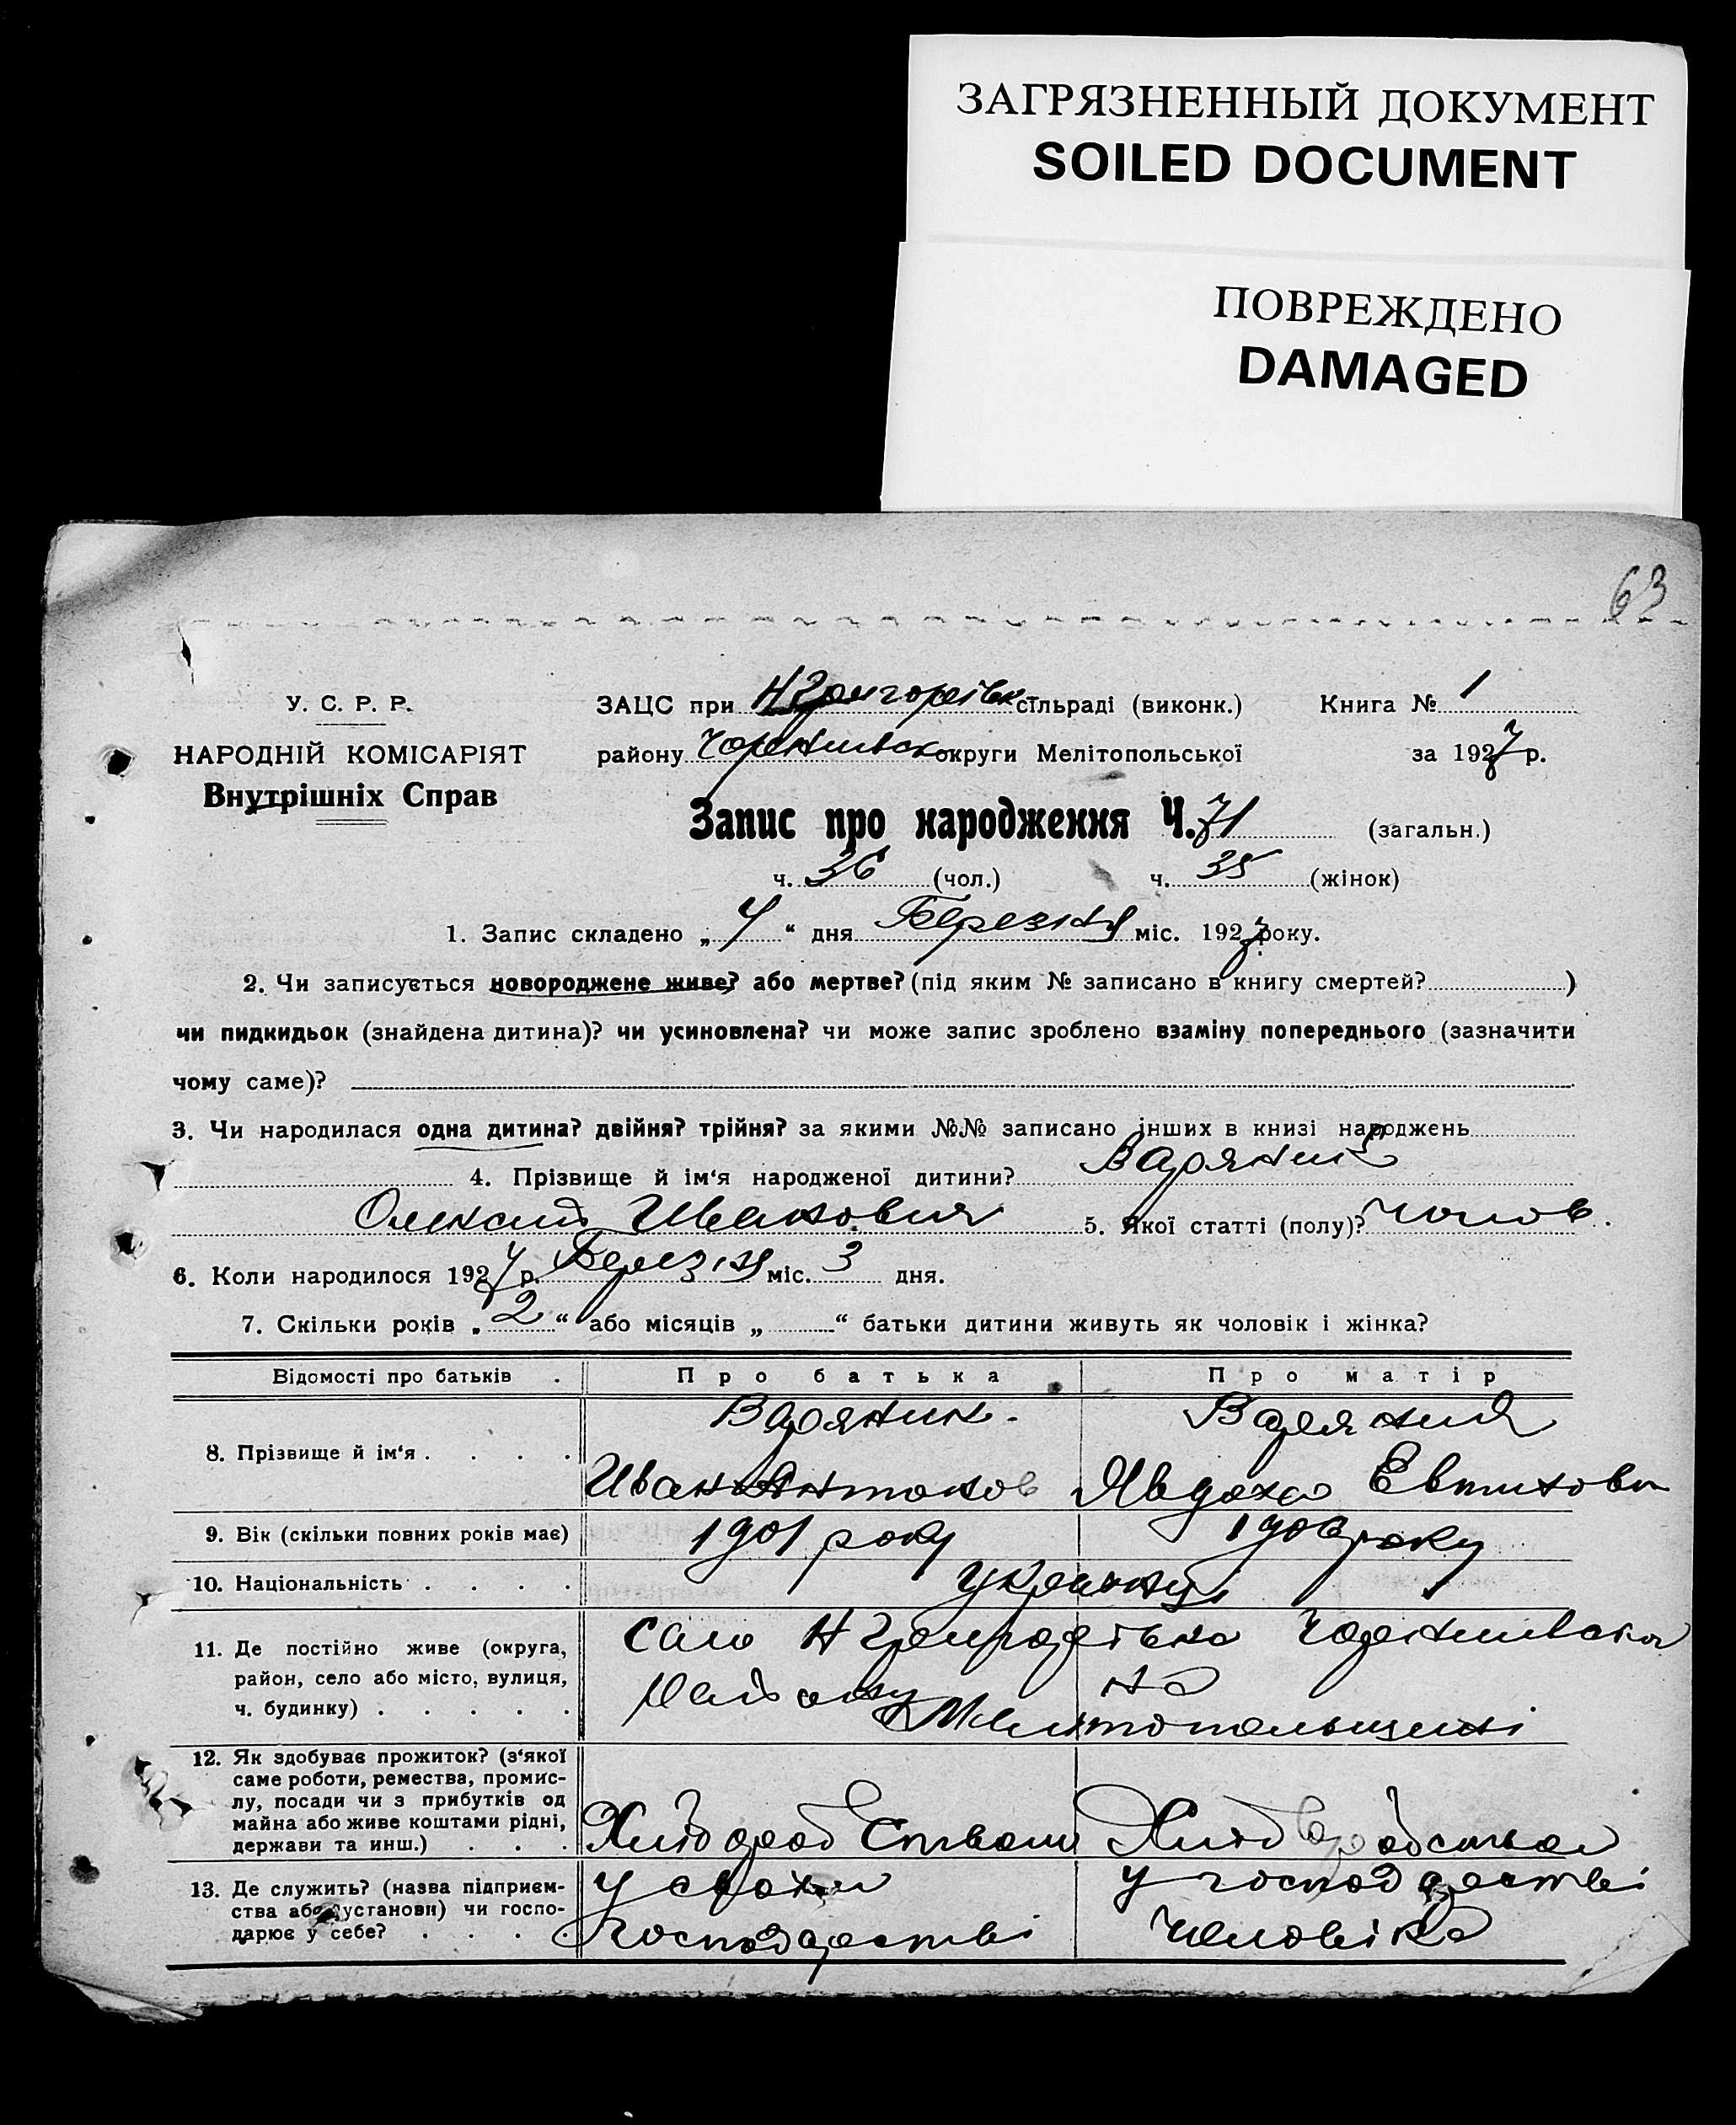 ЗАГРЯЗНЕННЫЙ ДОКУМЕНТ
SOILED DOCUMENT
ПОВРЕЖДЕНО
DAMAGED
63
У. С. Р. Р. ЗАЦС при Н Григорівк сільраді (виконк.) Книга № 1
НАРОДНІЙ КОМІСАРІЯТ району округи Мелітопольської за 1927 р.
Внутрішніх Справ
Запис про народження Ч. 71 (загальн.)
ч. 36 (чол.) ч. 35 (жінок)
1. Запис складено „ 4 “ дня Березня міс. 1927 року.
2. Чи записується новороджене живе? або мертве? (під яким № записано в книгу смертей? )
чи пидкидьок (знайдена дитина)? чи усиновлена? чи може запис зроблено взаміну попереднього (зазначити
чому саме)?
3. Чи народилася одна дитина? двійня? трійня? за якими №№ записано інших в книзі народжень
4. Прізвище й ім‘я народженої дитини? Варяник
Олексій Иванович 5. Якої статті (полу)? чолов.
6. Коли народилося 1927 р. Березня міс. 3 дня.
7. Скільки років „ 2 “ або місяців „ “ батьки дитини живуть як чоловік і жінка?
Відомості про батьків . Про батька Про матір
Варяник. Варяник
8. Прізвище й ім‘я . . . .
Иван Антонов Явдоха Евтихова
9. Вік (скільки повних років має) 1901 року 1906 року
10. Національність . . . . українці
11. Де постійно живе (округа, село Н Григорівка
район, село або місто, вулиця, району на
ч. будинку) . . . . . Мелитопольщині
12. Як здобуває прожиток? (з‘якої
саме роботи, ремества, промис-
лу, посади чи з прибутків од
майна або живе коштами рідні,
держави та инш.) . . . Хліборобством Хліборобством
13. Де служить? (назва підприєм- у своим у господарстві
ства або установи) чи госпо-
дарює у себе? . . . . господарстві человіка